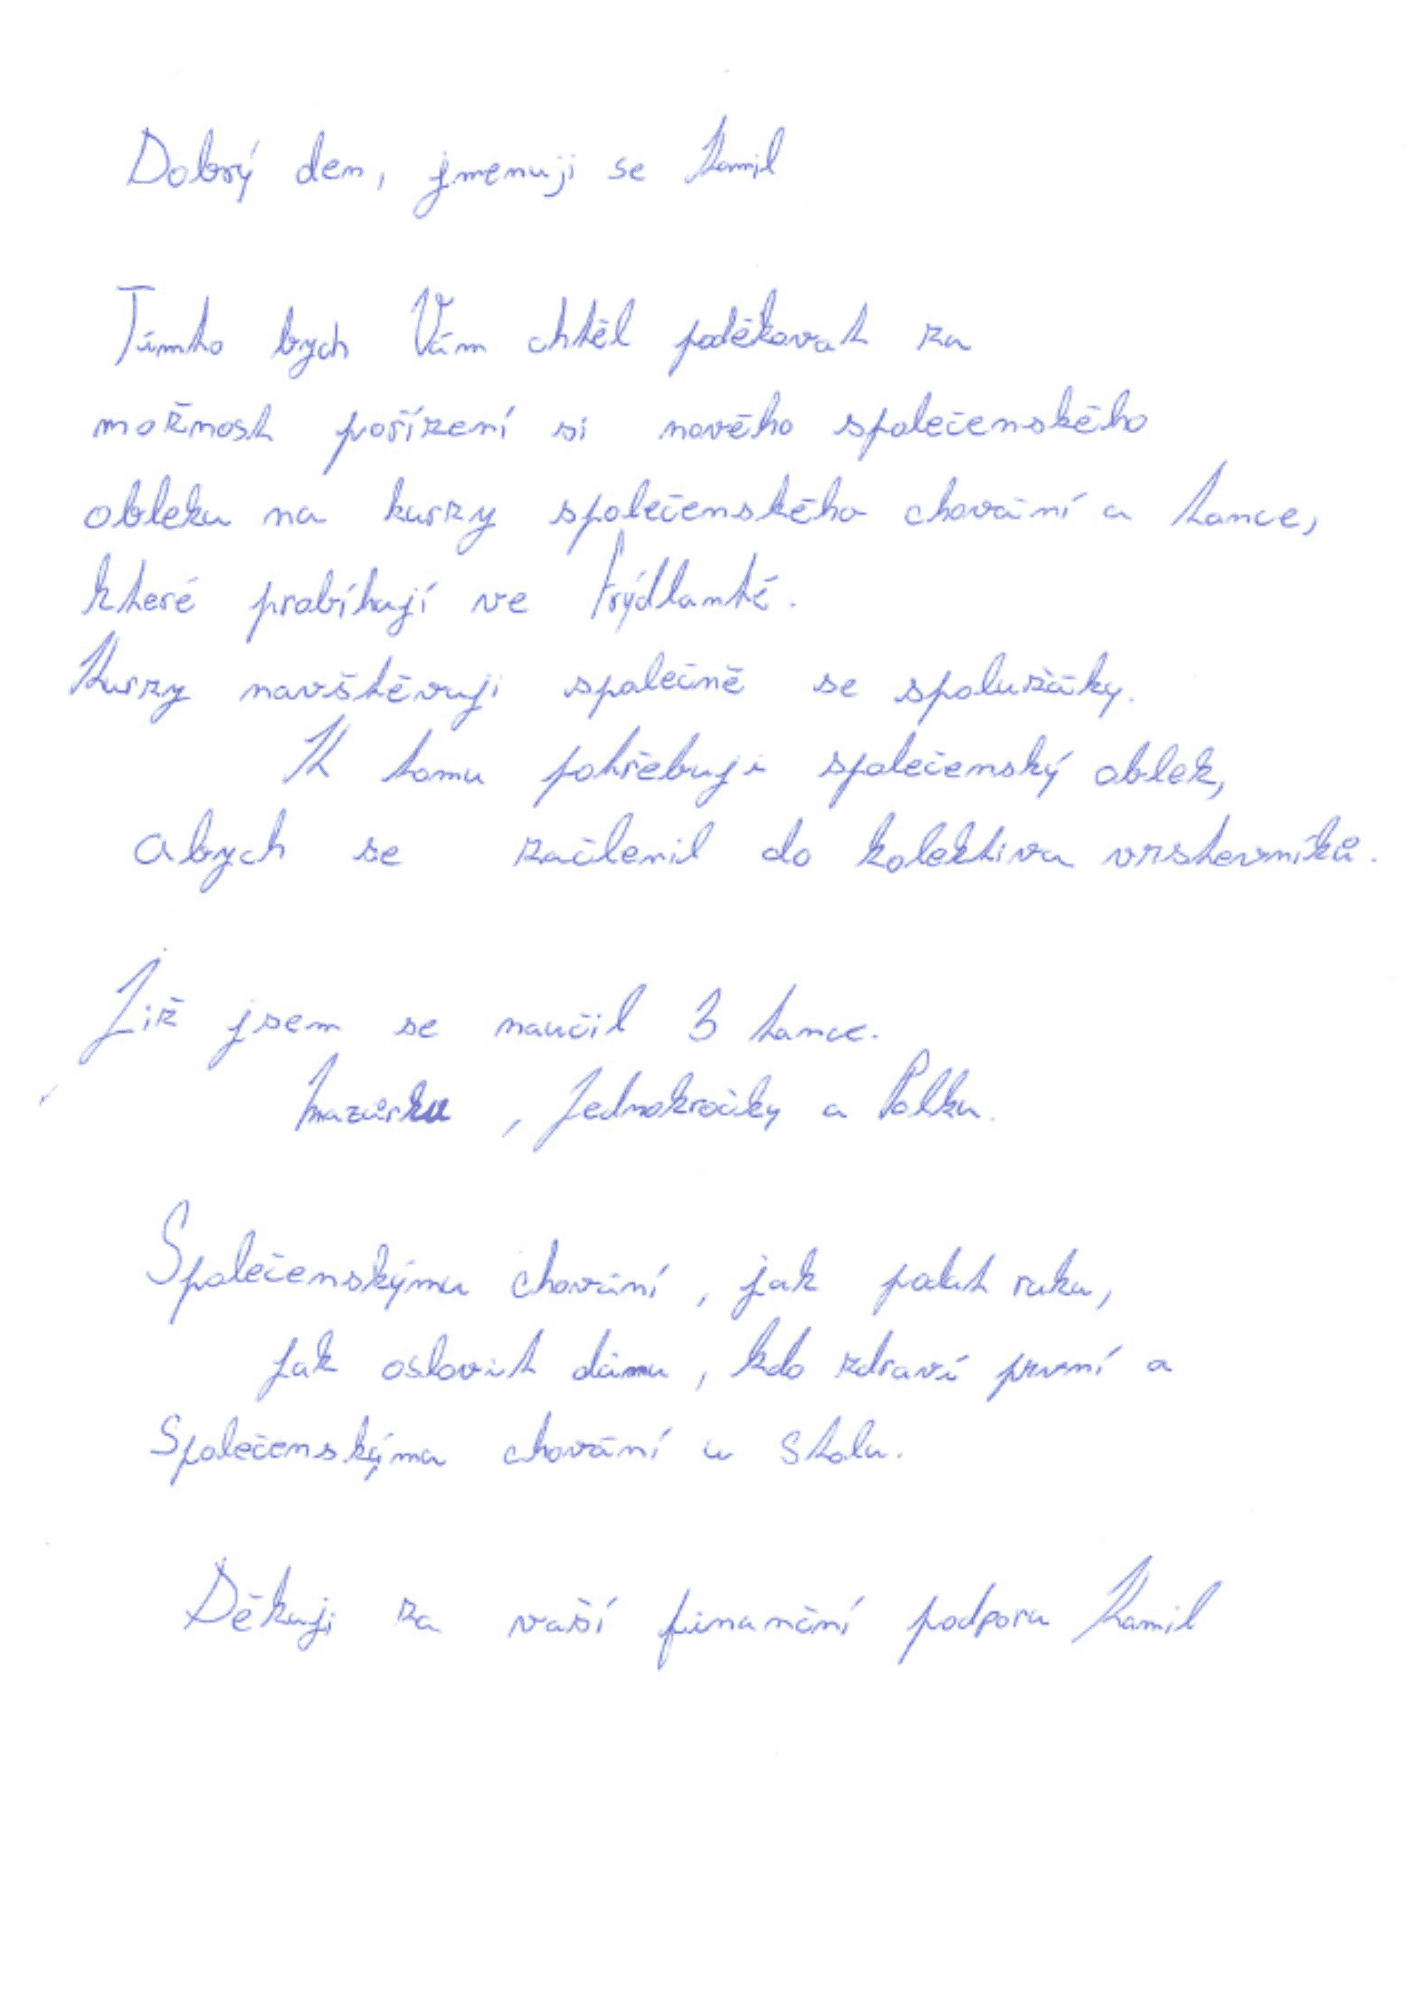 Dobrý den, jmenuji se Kamil
Tímto bych Vám chtěl poděkovat za
možnost pořízení si nového společenského
obleku na kurzy společenského chování a tance,
které probíhají ve Frýdlantě.
Kurzy navštěvuji společně se spolužáky.
K tomu potřebuji společenský oblek,
abych se začlenil do kolektivu vrstevníků.
Již jsem se naučil 3 tance.
mazurku , Jednokročky a Polku.
Společenskýmu chování , jak podat ruku,
jak oslovit dámu , kdo zdraví první a
Společenskýmu chování u stolu.
Děkuji za vaší finanční podporu Kamil